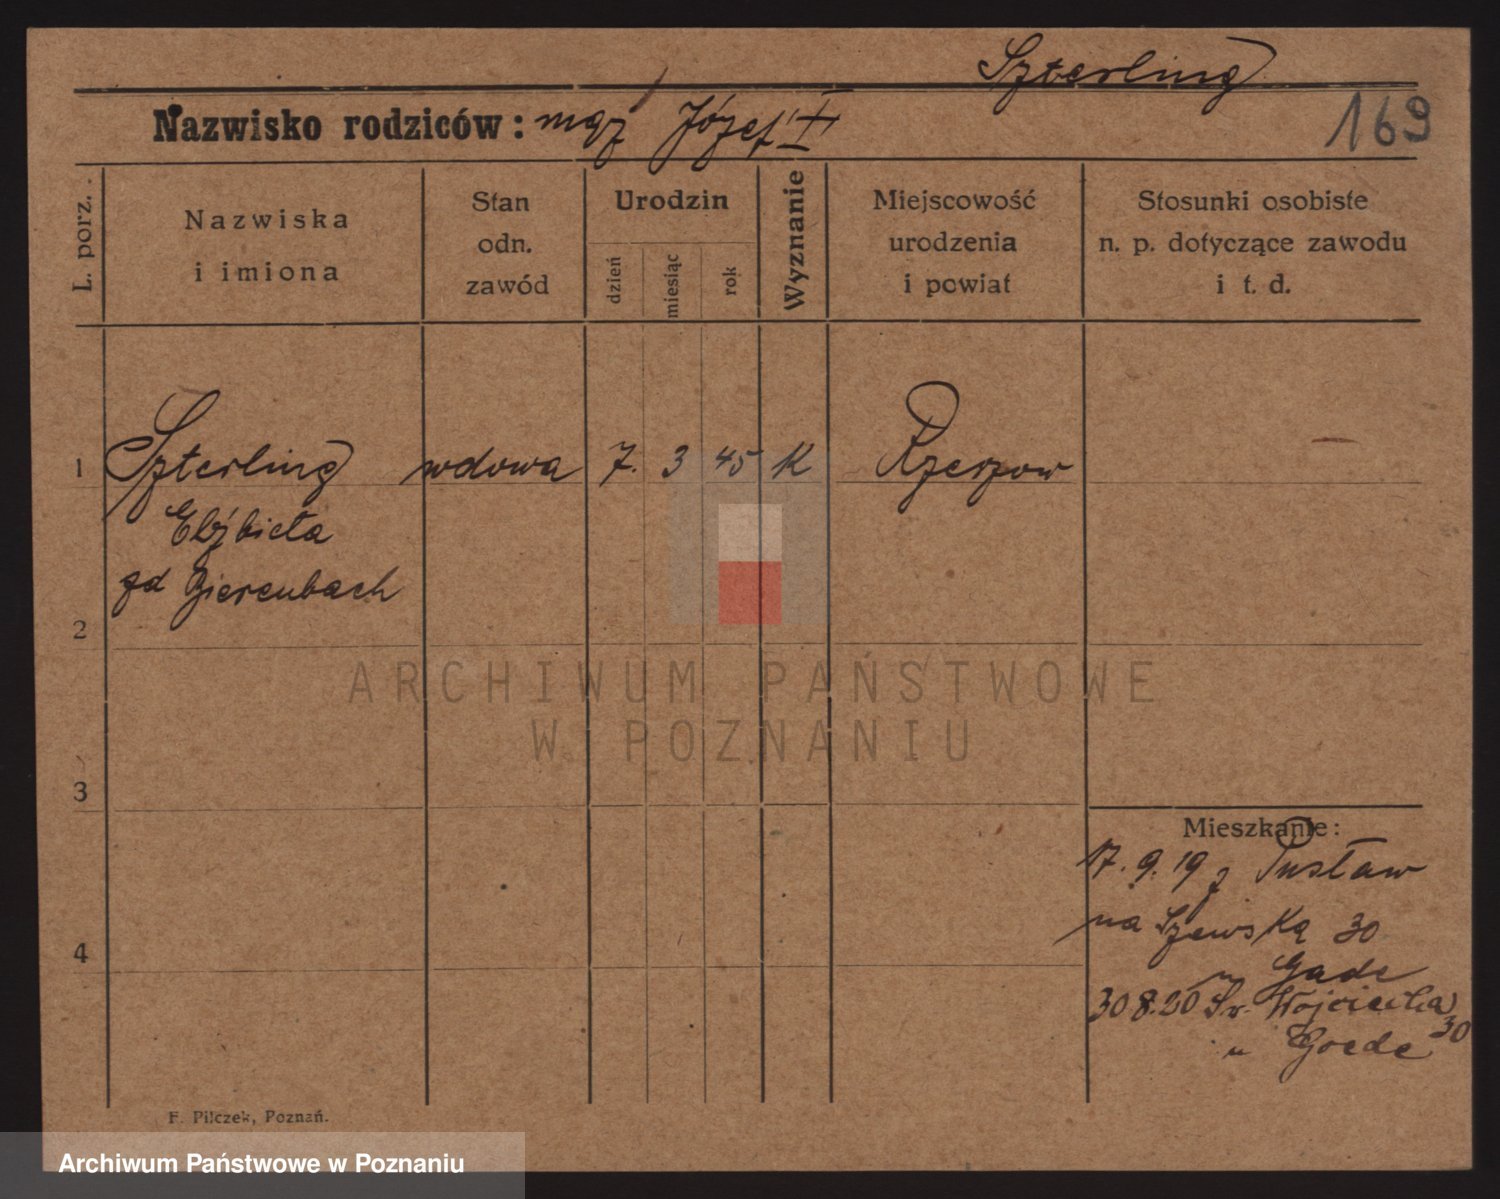 Szterling
169
Nazwisko rodziców: mąż Józef
L. porz.
Nazwiska
i imiona
Stan
odn.
zawód
Urodzin
dzień
miesiąc
rok
Wyznanie
Miejscowość
urodzenia
i powiat
Stosunki osobiste
n. p. dotyczące zawodu
i t. d.
1 Szterling wdowa 7. 3 45 K Rzeszow
Elżbieta
zd Bierenbach
2
3
4
Mieszkanie:
17. 9. 19 z Pustaw
na Szewską 30
Gade
30 8.20 Św. Wojciecha 30
u Goede
F. Pilczek, Poznań.
ARCHIWUM PAŃSTWOWE
W POZNANIU
Archiwum Państwowe w Poznaniu